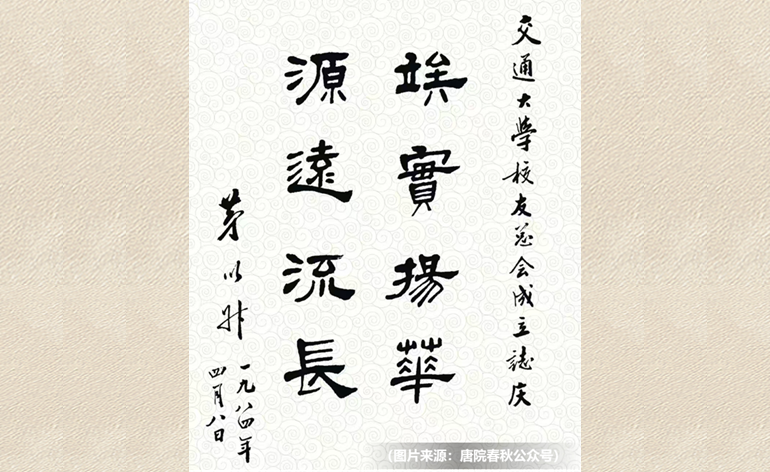 交通大學校友总会成立誌庆
竢實揚華
源遠流長
茅以昇
一九八四年
四月八日
(图片来源：唐院春秋公众号)